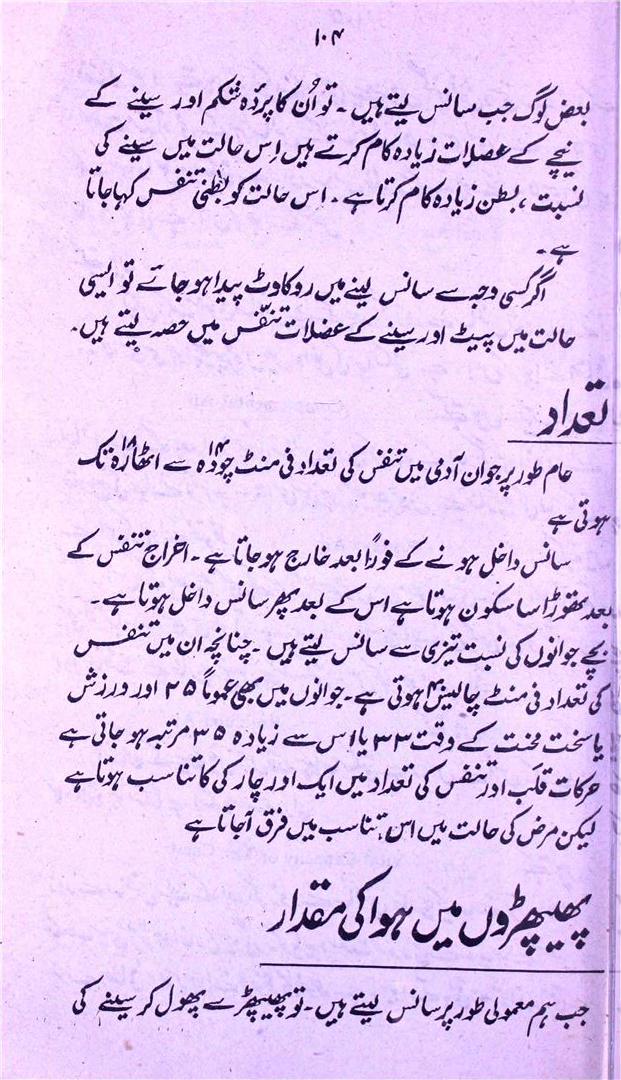 ۱۰۴
بعض لوگ جب سانس لیتے ہیں۔ تو اُن کا پردہ شکم اور سینے کے
نیچے کے عضلات زیادہ کام کرتے ہیں اِس حالت میں سینے کی
نسبت، بطن زیادہ کام کرتا ہے۔ اس حالت کو بطنی تنفس کہا جاتا
ہے۔
اگر کسی وجہ سے سانس لینے میں روکاوٹ پیدا ہو جائے تو ایسی
حالت میں پیٹ اور سینے کے عضلات تنفّس میں حصہ لیتے ہیں۔
تعداد
عام طور پر جوان آدمی میں تنفس کی تعداد فی منٹ چودہ ۱۴ سے اٹھارہ ۱۸ تک
ہوتی ہے
سانس داخل ہونے کے فوراً بعد خارج ہو جاتا ہے۔ اخراج تنفس کے
بعد تھوڑا سا سکون ہوتا ہے اس کے بعد پھر سانس داخل ہوتا ہے۔
بچے جوانوں کی نسبت تیزی سے سانس لیتے ہیں۔ چنانچہ ان میں تنفس
کی تعداد فی منٹ چالیس ۴۰ ہوتی ہے۔ جوانوں میں بھی عموماً ۲۵ اور ورزش
یا سخت محنت کے وقت ۳۳ یا اس سے زیادہ ۳۵ مرتبہ ہو جاتی ہے
حرکات قلب اور تنفس کی تعداد میں ایک اور چار کی کا تناسب ہوتا ہے
لیکن مرض کی حالت میں اس تناسب میں فرق آجاتا ہے
پھیپھڑوں میں ہوا کی مقدار
جب ہم معمولی طور پر سانس لیتے ہیں۔ تو پھیپھڑے سے پھول کر سینے کی